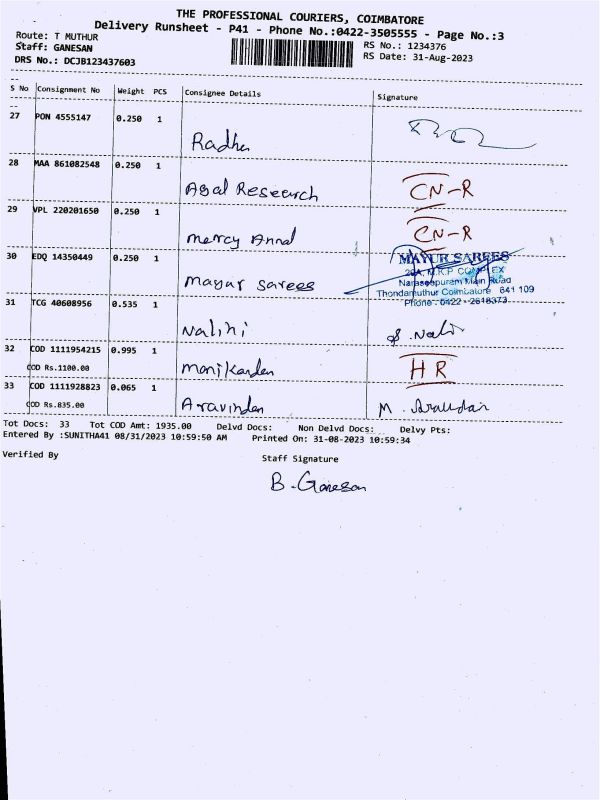 THE PROFESSIONAL COURIERS, COIMBATORE
Delivery Runsheet - P41 - Phone No.:0422-3505555 - Page No.:3
Route: T MUTHUR
RS No.: 1234376
Staff: GANESAN
RS Date: 31-Aug-2023
DRS No.: DCJB123437603
S No Consignment No Weight PCS Consignee Details Signature
27 PON 4555147 0.250 1
Radha
28 MAA 861082548 0.250 1
Agal Research CN-R
29 VPL 220201650 0.250 1
Mercy Annal CN-R
30 EDQ 14350449 0.250 1
Mayur Sarees
MAYUR SAREES
Naraseepuram Main Road
Thondamuthur Coimbatore 641 109
Phone: 0422 - 2618373
31 TCG 40608956 0.535 1
Nalini
32 COD 1111954215 0.995 1
COD Rs.1100.00 Manikanden HR
33 COD 1111928823 0.065 1
COD Rs.835.00 Aravinden
Tot Docs: 33 Tot COD Amt: 1935.00 Delvd Docs: Non Delvd Docs: Delvy Pts:
Entered By :SUNITHA41 08/31/2023 10:59:50 AM Printed On: 31-08-2023 10:59:34
Verified By Staff Signature
B. Ganesan